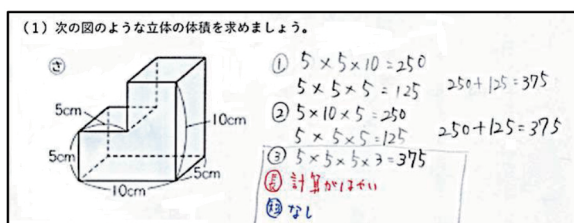 (1) 次の図のような立体の体積を求めましょう。
さ
5cm
5cm
10cm
5cm
10cm
① 5×5×10=250
5×5×5=125 250+125=375
② 5×10×5=250
5×5×5=125 250+125=375
③ 5×5×5×3=375
長 計算がはやい
短 なし